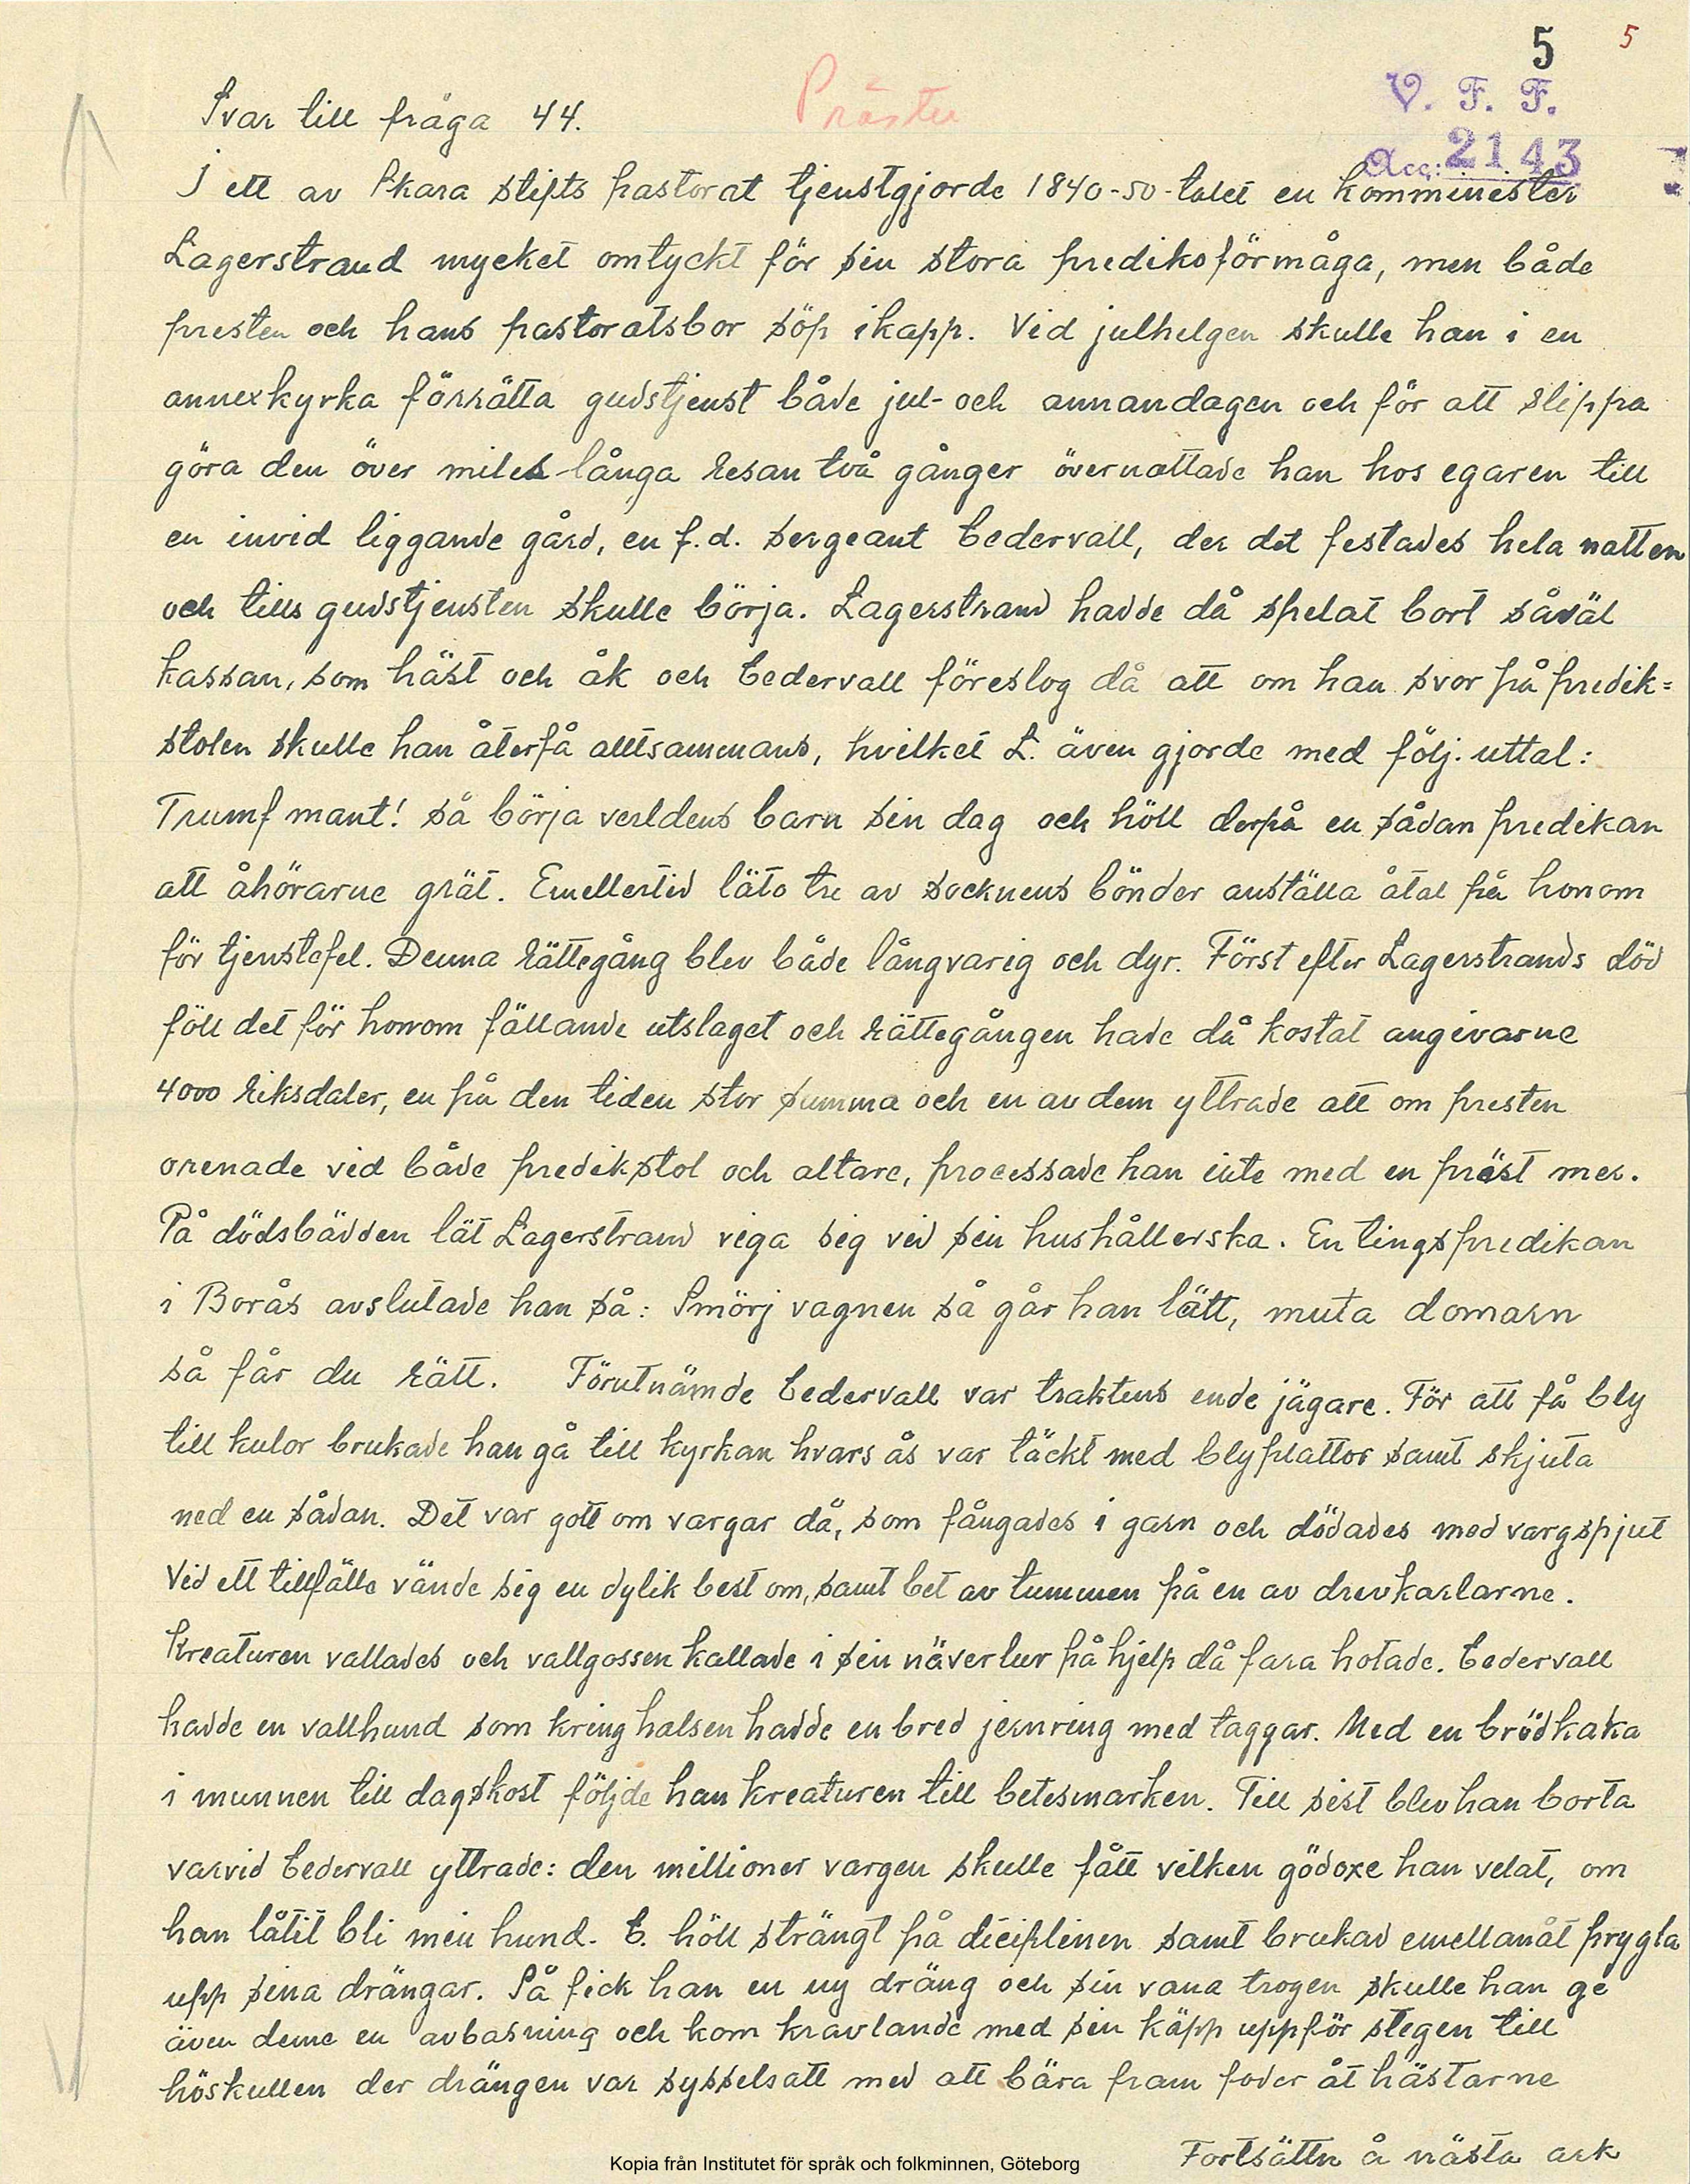 5
5
V. F. F.
Präster
Svar till fråga 44.
Acc: 2143
I ett av Skara stifts pastorat tjenstgjorde 1840-50-talet en komminister
Lagerstrand mycket omtyckt för sin stora predikoförmåga, men både
presten och hans pastoratsbor söp ikapp. Vid julhelgen skulle han i en
annexkyrka förrätta gudstjenst både jul- och annandagen och för att slippa
göra den över milslånga resan två gånger övernattade han hos egaren till
en invid liggande gård, en f.d. sergeant Cedervall, der det festades hela natten
och tills gudstjensten skulle börja. Lagerstrand hadde då spelat bort såväl
kassan, som häst och åk och Cedervall föreslog då att om han svor på predik=
stolen skulle han återfå alltsammans, hvilket L. även gjorde med följ. uttal:
Trumf mant! så börja verldens barn sin dag och höll derpå en sådan predikan
att åhörarne grät. Emellertid läto tre av socknens bönder anställa åtal på honom
för tjenstefel. Denna rättegång blev både långvarig och dyr. Först efter Lagerstrands död
föll det för honom fällande utslaget och rättegången hade då kostat angivarne
4000 riksdaler, en på den tiden stor summa och en av dem yttrade att om presten
orenade vid både predikstol och altare, processade han inte med en präst mer.
På dödsbädden lät Lagerstrand viga sig vid sin hushållerska. En tingspredikan
i Borås avslutade han så: Smörj vagnen så går han lätt, muta domarn
så får du rätt. Förutnämde Cedervall var traktens ende jägare. För att få bly
till kulor brukade han gå till kyrkan hvars ås var täckt med blyplattor samt skjuta
ned en sådan. Det var gott om vargar då, som fångades i garn och dödades med vargspjut
Vid ett tillfälle vände sig en dylik best om, samt bet av tummen på en av drevkarlarne.
Kreaturen vallades och vallgossen kallade i sin näverlur på hjelp då fara hotade. Cedervall
hadde en vallhund som kring halsen hadde en bred jernring med taggar. Med en brödkaka
i munnen till dagskost följde han kreaturen till betesmarken. Till sist blev han borta
varvid Cedervall yttrade: den millioner vargen skulle fått vilken gödoxe han velat, om
han låtit bli min hund. C. höll strängt på diciplinen samt brukad emellanåt prygla
upp sina drängar. Så fick han en ny dräng och sin vana trogen skulle han ge
även denne en avbasning och kom kravlande med sin käpp uppför stegen till
höskullen der drängen var sysselsatt med att bära fram foder åt hästarne
Fortsättn å nästa ark
Kopia från Institutet för språk och folkminnen, Göteborg